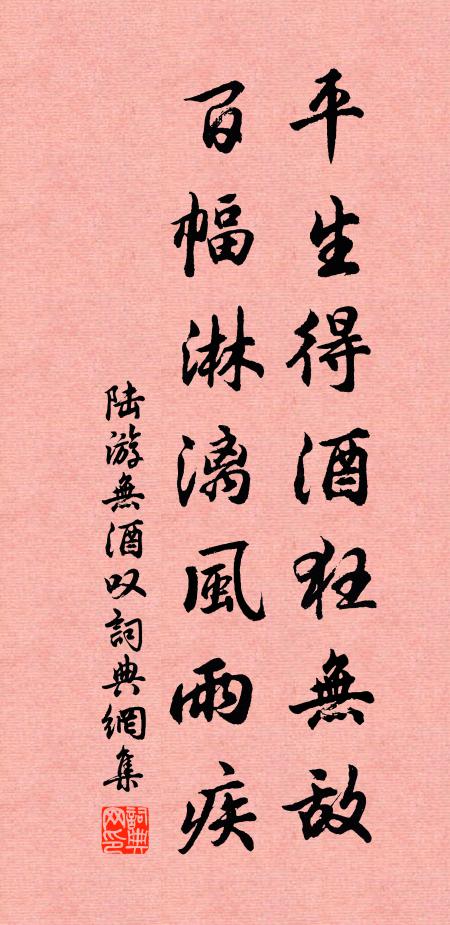 平生得酒狂無敌
百幅淋漓風雨疾
陆游無酒叹詞典網集
詞典网印